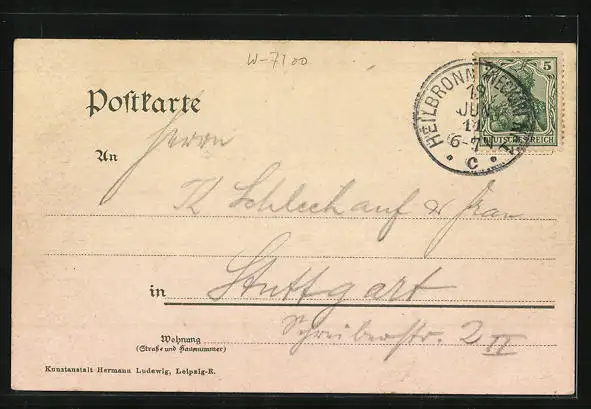 W-7100
Postkarte
5
DEUTSCHES REICH
HEILBRONN (NECKAR)
18
JUN
11
6-7
C
Herrn
An
K Schlechauf & Frau
in Stuttgart
Wohnung Schreiberstr. 2 II
(Straße und Hausnummer)
Kunstanstalt Hermann Ludewig, Leipzig-R.